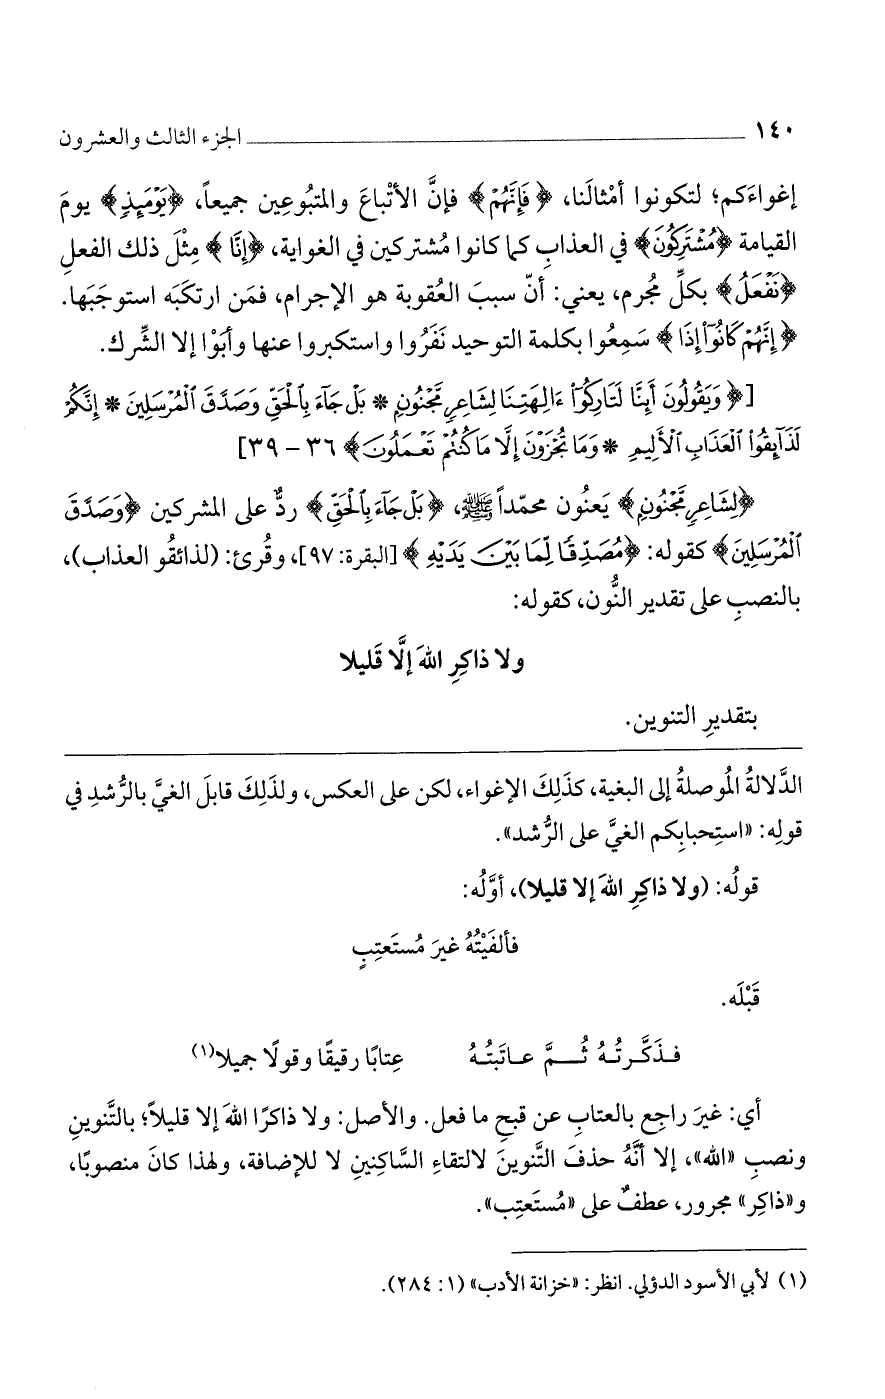 ١٤٠ ــــــــــــ الجزء الثالث والعشرون
إغواءَكم؛ لتكونوا أمْثالَنا، ﴿فَإِنَّهُمْ﴾ فإنَّ الأتْباعَ والمتبُوعِين جميعاً، ﴿يَوْمَئِذٍ﴾ يومَ
القيامة ﴿مُشْتَرِكُونَ﴾ في العذابِ كما كانوا مُشتركين في الغواية، ﴿إِنَّا﴾ مِثْلَ ذلك الفعلِ
﴿نَفْعَلُ﴾ بكلِّ مُجرم، يعني: أنّ سببَ العُقوبة هو الإجرام، فمَن ارتكبَه استوجَبَها.
﴿إِنَّهُمْ كَانُوٓا۟ إِذَا﴾ سَمِعُوا بكلمة التوحيد نَفَرُوا واستكبروا عنها وأبَوْا إلا الشِّرك.
[﴿وَيَقُولُونَ أَئِنَّا لَتَارِكُوٓا۟ ءَالِهَتِنَا لِشَاعِرٍ مَّجْنُونٍ * بَلْ جَآءَ بِٱلْحَقِّ وَصَدَّقَ ٱلْمُرْسَلِينَ * إِنَّكُمْ
لَذَآئِقُوا۟ ٱلْعَذَابِ ٱلْأَلِيمِ * وَمَا تُجْزَوْنَ إِلَّا مَا كُنتُمْ تَعْمَلُونَ﴾ ٣٦ – ٣٩]
﴿لِشَاعِرٍ مَّجْنُونٍ﴾ يَعنُون محمّداً ﷺ، ﴿بَلْ جَآءَ بِٱلْحَقِّ﴾ ردٌّ على المشركين ﴿وَصَدَّقَ
ٱلْمُرْسَلِينَ﴾ كقوله: ﴿مُصَدِّقًا لِّمَا بَيْنَ يَدَيْهِ﴾ [البقرة: ٩٧]، وقُرئ: (لذائقو العذاب)،
بالنصبِ على تقدير النُّون، كقوله:
ولا ذاكِرِ اللهَ إلَّا قَليلا
بتقديرِ التنوين.
الدَّلالةُ المُوصلةُ إلى البغية، كذَلِكَ الإغواء، لكن على العكس، ولذَلِكَ قابلَ الغيَّ بالرُّشدِ في
قولِه: «استِحبابِكم الغيَّ على الرُّشد».
قولُه: (ولا ذاكِرِ اللهَ إلا قليلا)، أوَّلُه:
فألفَيْتُهُ غيرَ مُستَعتِبٍ
قَبْلَه.
فـذَكَّرتُـهُ ثُـــمَّ عـاتَبتُـهُ عِتابًا رقيقًا وقولًا جميلا(١)
أي: غيرَ راجعٍ بالعتابِ عن قبحِ ما فعل. والأصل: ولا ذاكرًا اللهَ إلا قليلاً؛ بالتَّنوينِ
ونصبِ «الله»، إلا أنَّهُ حذفَ التَّنوينَ لالتقاءِ السَّاكنِينِ لا للإضافة، ولهذا كانَ منصوبًا،
و«ذاكِر» مجرور، عطفٌ على «مُستَعتِب».
(١) لأبي الأسود الدؤلي. انظر: «خزانة الأدب» (١: ٢٨٤).